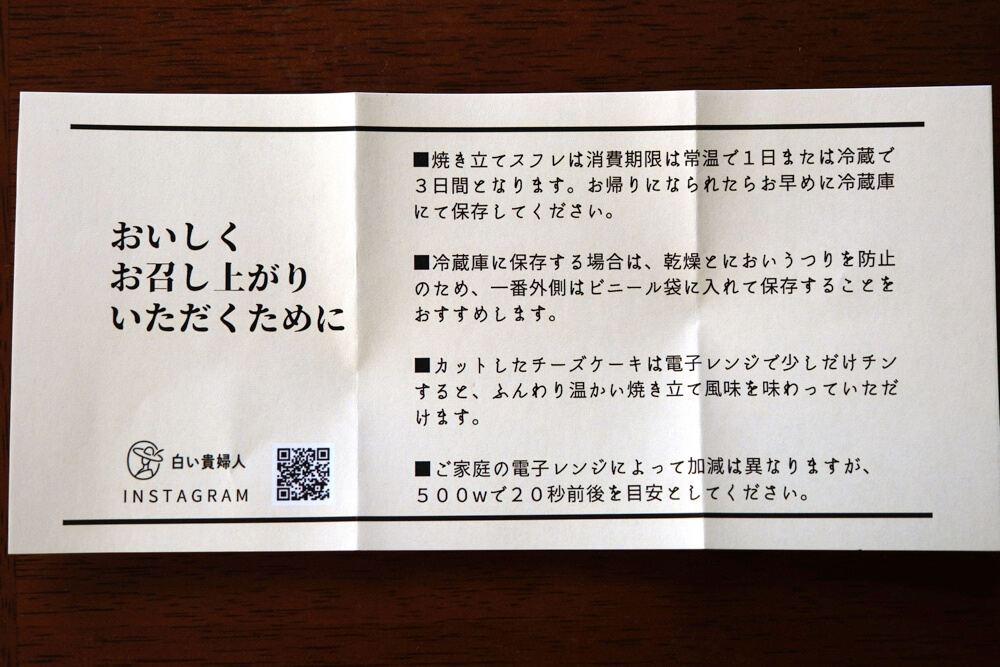 おいしく
お召し上がり
いただくために
白い貴婦人
INSTAGRAM
■焼き立てスフレは消費期限は常温で1日または冷蔵で
3日間となります。お帰りになられたらお早めに冷蔵庫
にて保存してください。
■冷蔵庫に保存する場合は、乾燥とにおいうつりを防止
のため、一番外側はビニール袋に入れて保存することを
おすすめします。
■カットしたチーズケーキは電子レンジで少しだけチン
すると、ふんわり温かい焼き立て風味を味わっていただ
けます。
■ご家庭の電子レンジによって加減は異なりますが、
500wで20秒前後を目安としてください。